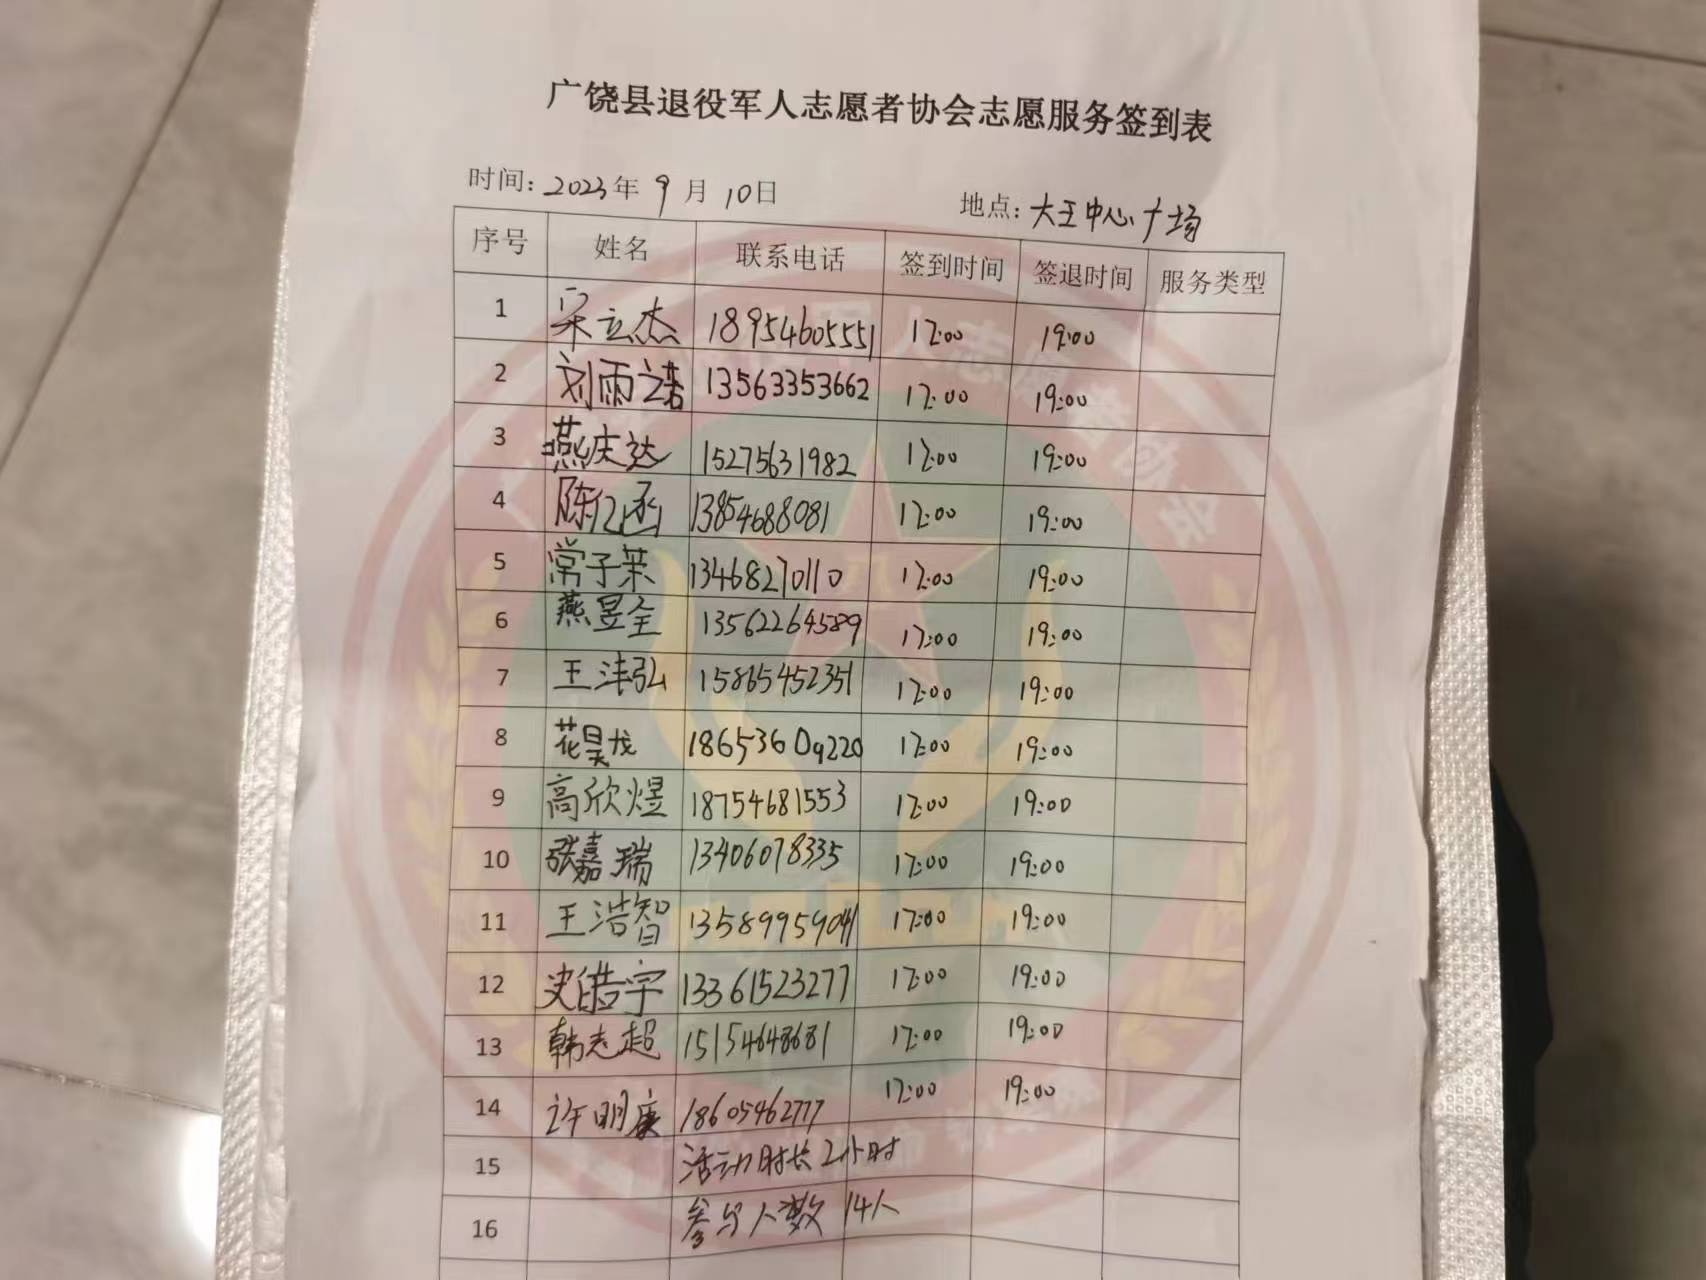 广饶县退役军人志愿者协会志愿服务签到表
时间: 2023年 9 月 10日 地点: 大王中心广场
序号 姓名 联系电话 签到时间 签退时间 服务类型
1 宋立杰 18954605551 17:00 19:00
2 刘雨诺 13563353662 17:00 19:00
3 燕庆达 15275631982 17:00 19:00
4 陈亿函 13854688081 17:00 19:00
5 常子荣 13468270110 17:00 19:00
6 燕昱全 13562264589 17:00 19:00
7 王沣弘 15865452351 17:00 19:00
8 花昊龙 18653609220 17:00 19:00
9 高欣煜 18754681553 17:00 19:00
10 张嘉瑞 13406078335 17:00 19:00
11 王浩智 13589959041 17:00 19:00
12 史皓宇 13361523277 17:00 19:00
13 韩志超 15154648681 17:00 19:00
14 许明康 18605462777 17:00 19:00
15 活动时长2小时
16 参与人数 14人